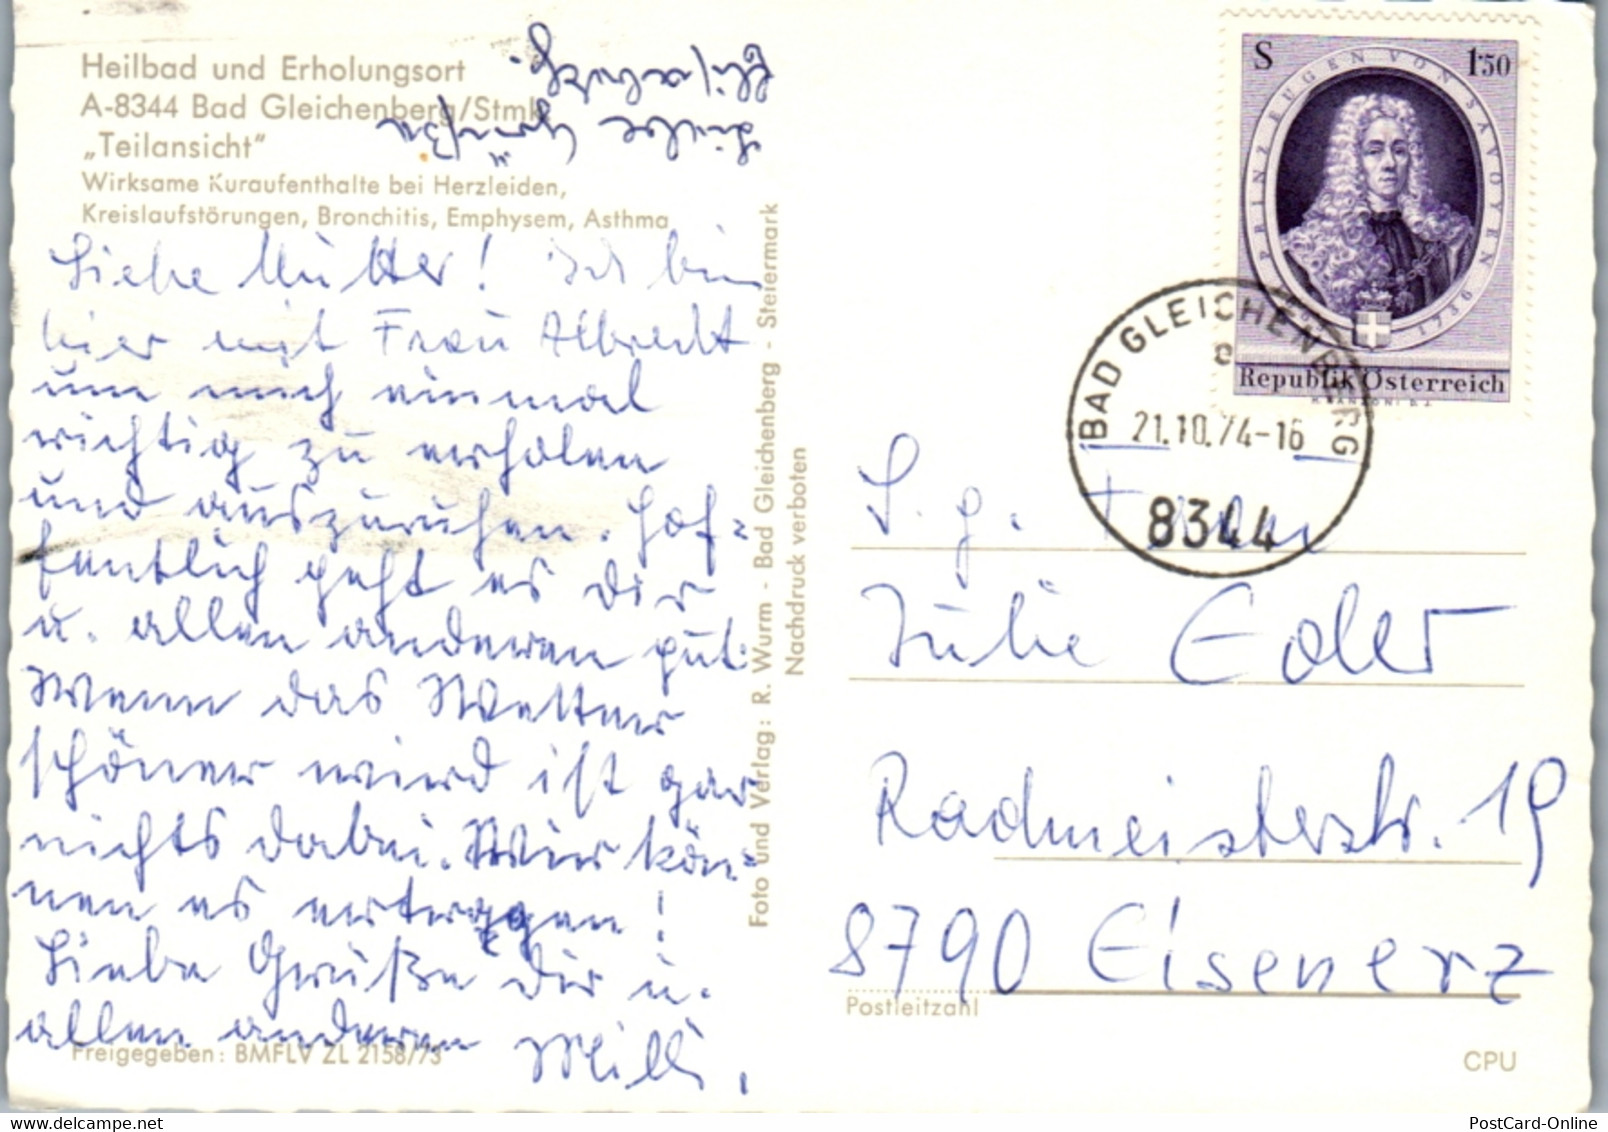 Heilbad und Erholungsort
A-8344 Bad Gleichenberg/Stmk.
„Teilansicht"
Wirksame Kuraufenthalte bei Herzleiden,
Kreislaufstörungen, Bronchitis, Emphysem, Asthma
Liebe Grüße
Elisabeth.
Liebe Mutter! Ich bin
hier mit Frau Albrecht
um mich einmal
richtig zu erholen
und auszuruhen. Hof=
fentlich geht es Dir
u. allen anderen gut.
Wenn das Wetter
schöner wird ist gar
nichts dabei. Wir kön=
nen es ertragen!
Liebe Grüße Dir u.
allen anderen Milli.
Freigegeben: BMFLV ZL 2158/73
Foto und Verlag: R. Wurm - Bad Gleichenberg - Steiermark
Nachdruck verboten
S 1·50
PRINZ EUGEN VON SAVOYEN
1736
Republik Österreich
BAD GLEICHENBERG
21.10.74-16
8344
S. g. Frau
Julie Edler
Radmeisterstr. 19
8790 Eisenerz
Postleitzahl
CPU
PostCard-Online